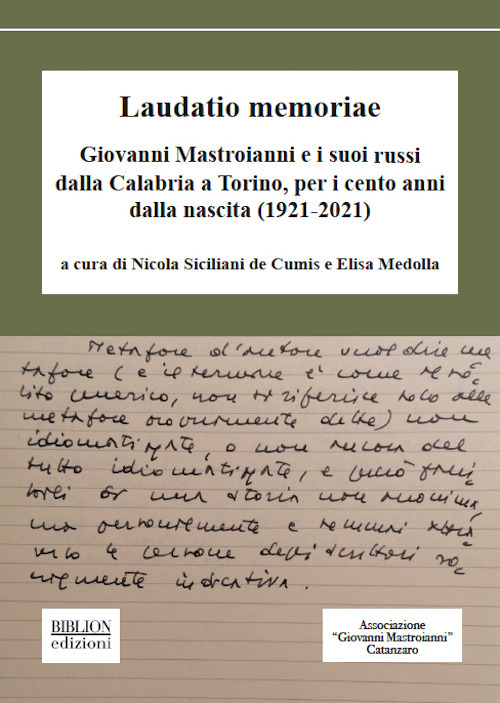 Laudatio memoriae
Giovanni Mastroianni e i suoi russi
dalla Calabria a Torino, per i cento anni
dalla nascita (1921-2021)
a cura di Nicola Siciliani de Cumis e Elisa Medolla
Metafore d'autore vuol dire me
tafore (e il termine è come
lito generico, non si riferisce solo alle
metafore propriamente dette) non
idiomatizzate, o non ancora del
tutto idiomatizzate, e perciò
di una storia non anonima,
ma personalmente e
degli scrittori
indicativa.
BIBLION
edizioni
Associazione
"Giovanni Mastroianni"
Catanzaro